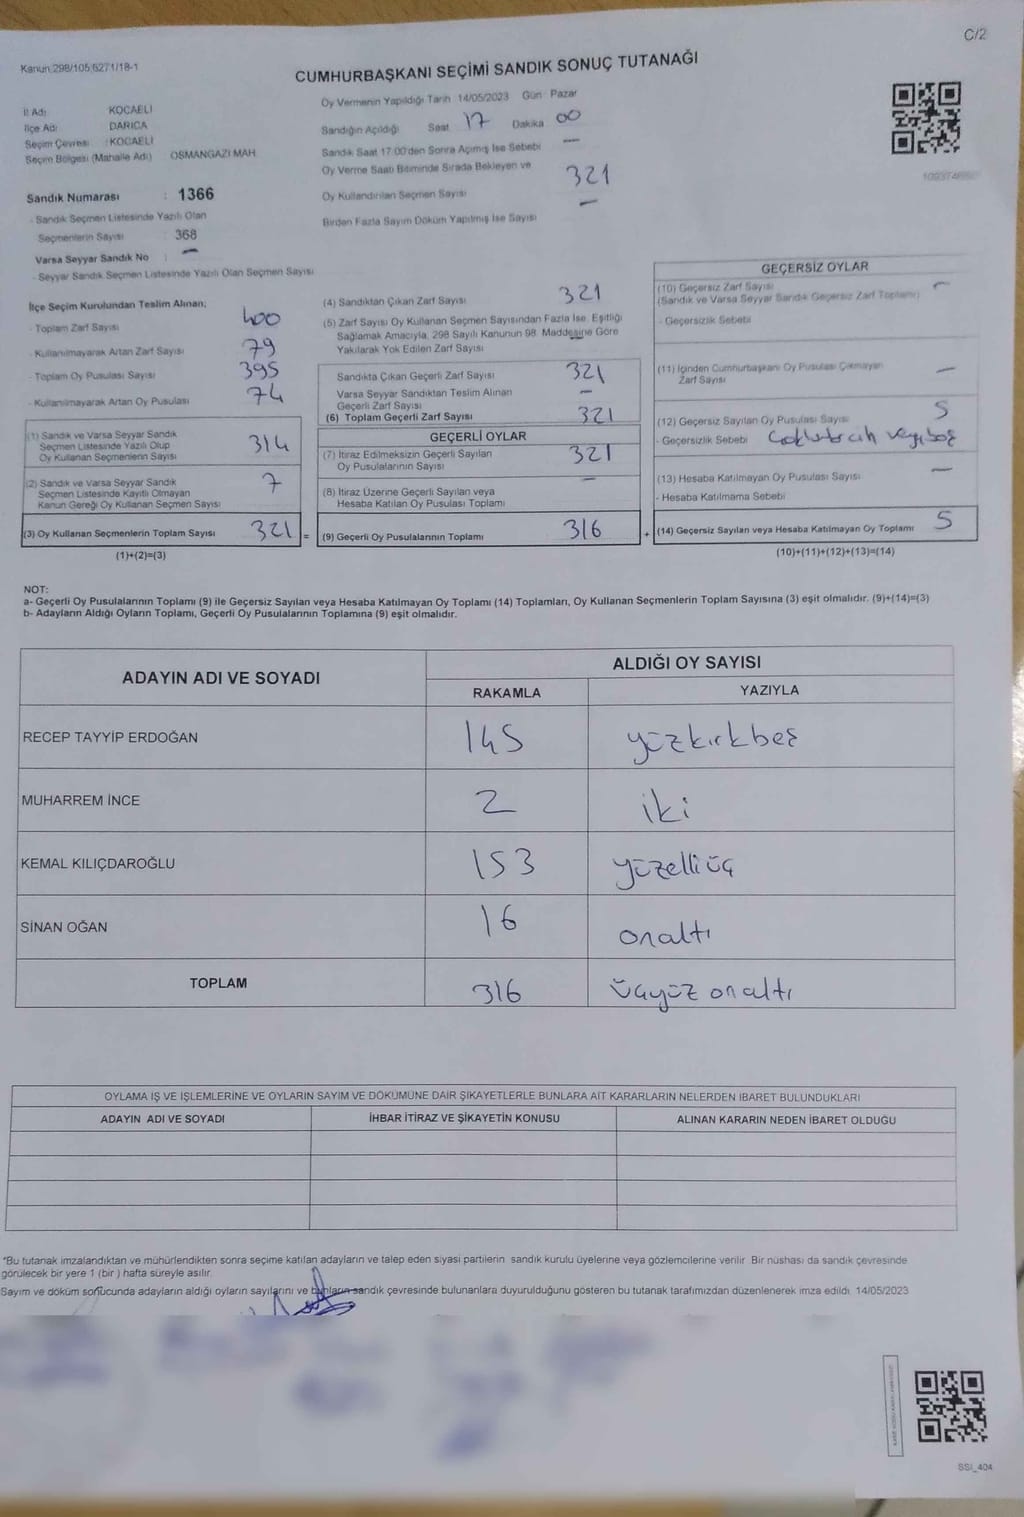 C/2
Kanun 298/105,6271/18-1
CUMHURBAŞKANI SEÇİMİ SANDIK SONUÇ TUTANAĞI
İl Adı : KOCAELİ
İlçe Adı : DARICA
Seçim Çevresi : KOCAELİ
Seçim Bölgesi (Mahalle Adı) OSMANGAZI MAH
Sandık Numarası : 1366
- Sandık Seçmen Listesinde Yazılı Olan
Seçmenlerin Sayısı 368
Varsa Seyyar Sandık No : —
- Seyyar Sandık Seçmen Listesinde Yazılı Olan Seçmen Sayısı
Oy Vermenin Yapıldığı Tarih 14/05/2023 Gün : Pazar
Sandığın Açıldığı Saat 17 Dakika 00
Sandık Saat 17:00'den Sonra Açımış İse Sebebi —
Oy Verme Saati Bitiminde Sırada Bekleyen ve
Oy Kullandırılan Seçmen Sayısı 321
Birden Fazla Sayım Döküm Yapılmış İse Sayısı —
İlçe Seçim Kurulundan Teslim Alınan;
- Toplam Zarf Sayısı 400
- Kullanılmayarak Artan Zarf Sayısı 79
- Toplam Oy Pusulası Sayısı 395
- Kullanılmayarak Artan Oy Pusulası 74
(1) Sandık ve Varsa Seyyar Sandık
Seçmen Listesinde Yazılı Olup
Oy Kullanan Seçmenlerin Sayısı 314
(2) Sandık ve Varsa Seyyar Sandık
Seçmen Listesinde Kayıtlı Olmayan
Kanun Gereği Oy Kullanan Seçmen Sayısı 7
(3) Oy Kullanan Seçmenlerin Toplam Sayısı 321 =
(1)+(2)=(3)
(4) Sandıktan Çıkan Zarf Sayısı 321
(5) Zarf Sayısı Oy Kullanan Seçmen Sayısından Fazla İse, Eşitliği
Sağlamak Amacıyla, 298 Sayılı Kanunun 98. Maddesine Göre
Yakılarak Yok Edilen Zarf Sayısı
Sandıkta Çıkan Geçerli Zarf Sayısı 321
Varsa Seyyar Sandıktan Teslim Alınan
Geçerli Zarf Sayısı —
(6) Toplam Geçerli Zarf Sayısı 321
GEÇERLİ OYLAR
(7) İtiraz Edilmeksizin Geçerli Sayılan
Oy Pusulalarının Sayısı 321
(8) İtiraz Üzerine Geçerli Sayılan veya
Hesaba Katılan Oy Pusulası Toplamı —
(9) Geçerli Oy Pusulalarının Toplamı 316 +
GEÇERSİZ OYLAR
(10) Geçersiz Zarf Sayısı —
(Sandık ve Varsa Seyyar Sandık Geçersiz Zarf Toplamı)
- Geçersizlik Sebebi
(11) İçinden Cumhurbaşkanı Oy Pusulası Çıkmayan
Zarf Sayısı —
(12) Geçersiz Sayılan Oy Pusulası Sayısı 5
- Geçersizlik Sebebi
(13) Hesaba Katılmayan Oy Pusulası Sayısı —
- Hesaba Katılmama Sebebi
(14) Geçersiz Sayılan veya Hesaba Katılmayan Oy Toplamı 5
(10)+(11)+(12)+(13)=(14)
NOT:
a- Geçerli Oy Pusulalarının Toplamı (9) ile Geçersiz Sayılan veya Hesaba Katılmayan Oy Toplamı (14) Toplamları, Oy Kullanan Seçmenlerin Toplam Sayısına (3) eşit olmalıdır. (9)+(14)=(3)
b- Adayların Aldığı Oyların Toplamı, Geçerli Oy Pusulalarının Toplamına (9) eşit olmalıdır.
ADAYIN ADI VE SOYADI ALDIĞI OY SAYISI
RAKAMLA YAZIYLA
RECEP TAYYİP ERDOĞAN 145 yüzkırkbeş
MUHARREM İNCE 2 iki
KEMAL KILIÇDAROĞLU 153 yüzelliüç
SİNAN OĞAN 16 onaltı
TOPLAM 316 üçyüz onaltı
OYLAMA İŞ VE İŞLEMLERİNE VE OYLARIN SAYIM VE DÖKÜMÜNE DAİR ŞİKAYETLERLE BUNLARA AİT KARARLARIN NELERDEN İBARET BULUNDUKLARI
ADAYIN ADI VE SOYADI İHBAR İTİRAZ VE ŞİKAYETİN KONUSU ALINAN KARARIN NEDEN İBARET OLDUĞU
*Bu tutanak imzalandıktan ve mühürlendikten sonra seçime katılan adayların ve talep eden siyasi partilerin sandık kurulu üyelerine veya gözlemcilerine verilir. Bir nüshası da sandık çevresinde
görülecek bir yere 1 (bir) hafta süreyle asılır.
Sayım ve döküm sonucunda adayların aldığı oyların sayılarını ve bunların sandık çevresinde bulunanlara duyurulduğunu gösteren bu tutanak tarafımızdan düzenlenerek imza edildi. 14/05/2023
SSI_404